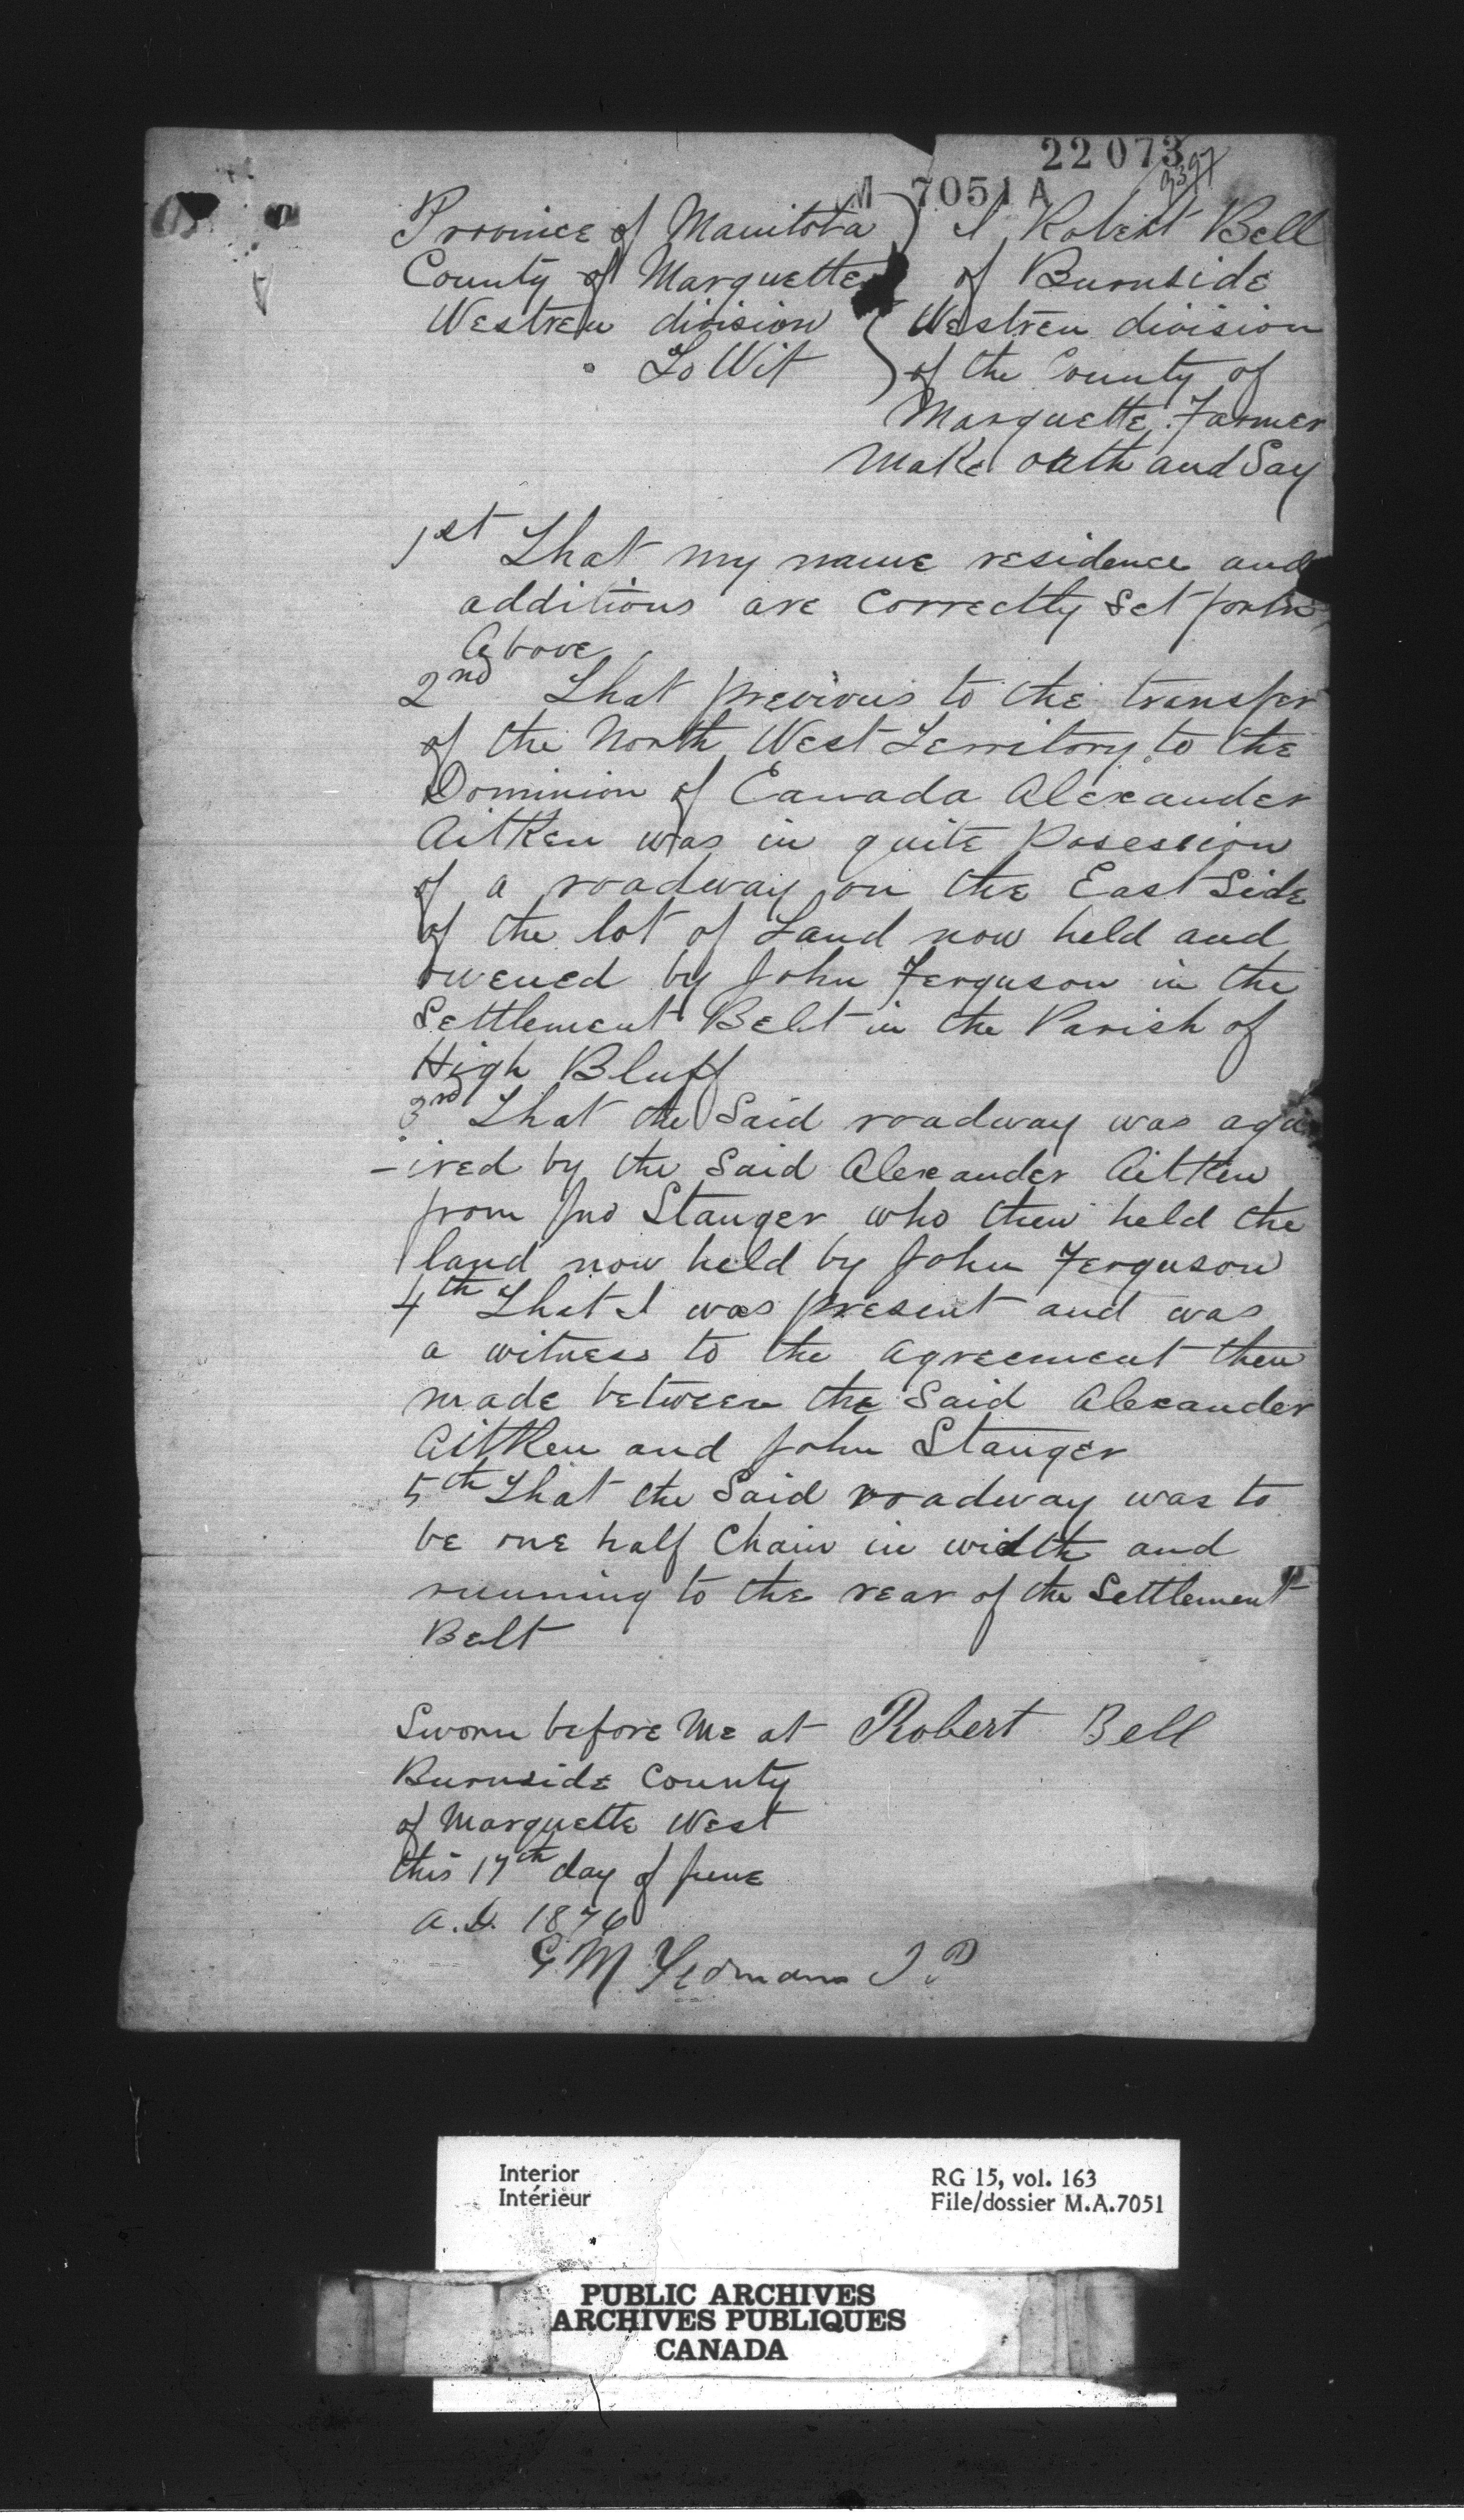 22073
9397
M 7051 A
Province of Manitoba } I, Robert Bell
County of Marquette } of Burnside
Westren division } Westren division
To Wit } of the County of
Marquette. Farmer
Make oath and Say
1st That my name residence and
additions are Correctly Set forth
Above
2nd That previous to the transfer
of the North West Territory to the
Dominion of Canada Alexander
Aitken was in quite Posession
of a roadway on the East Side
of the lot of Land now held and
owened by John Ferguson in the
Settlement Belt in the Parish of
High Bluff
3rd That the Said roadway was aqu
-ired by the Said Alexander Aitken
from Jno Stanger who then held the
land now held by John Ferguson
4th That I was present and was
a witness to the agreement then
made between the Said Alexander
Aitken and John Stanger
5th That the Said roadway was to
be one half Chain in width and
running to the rear of the Settlement
Belt
Sworn before Me at Robert Bell
Burnside County
of Marquette West
this 17th day of June
A.D. 1876
G M Yeomans J.P
Interior
Intérieur
RG 15, vol. 163
File/dossier M.A.7051
PUBLIC ARCHIVES
ARCHIVES PUBLIQUES
CANADA